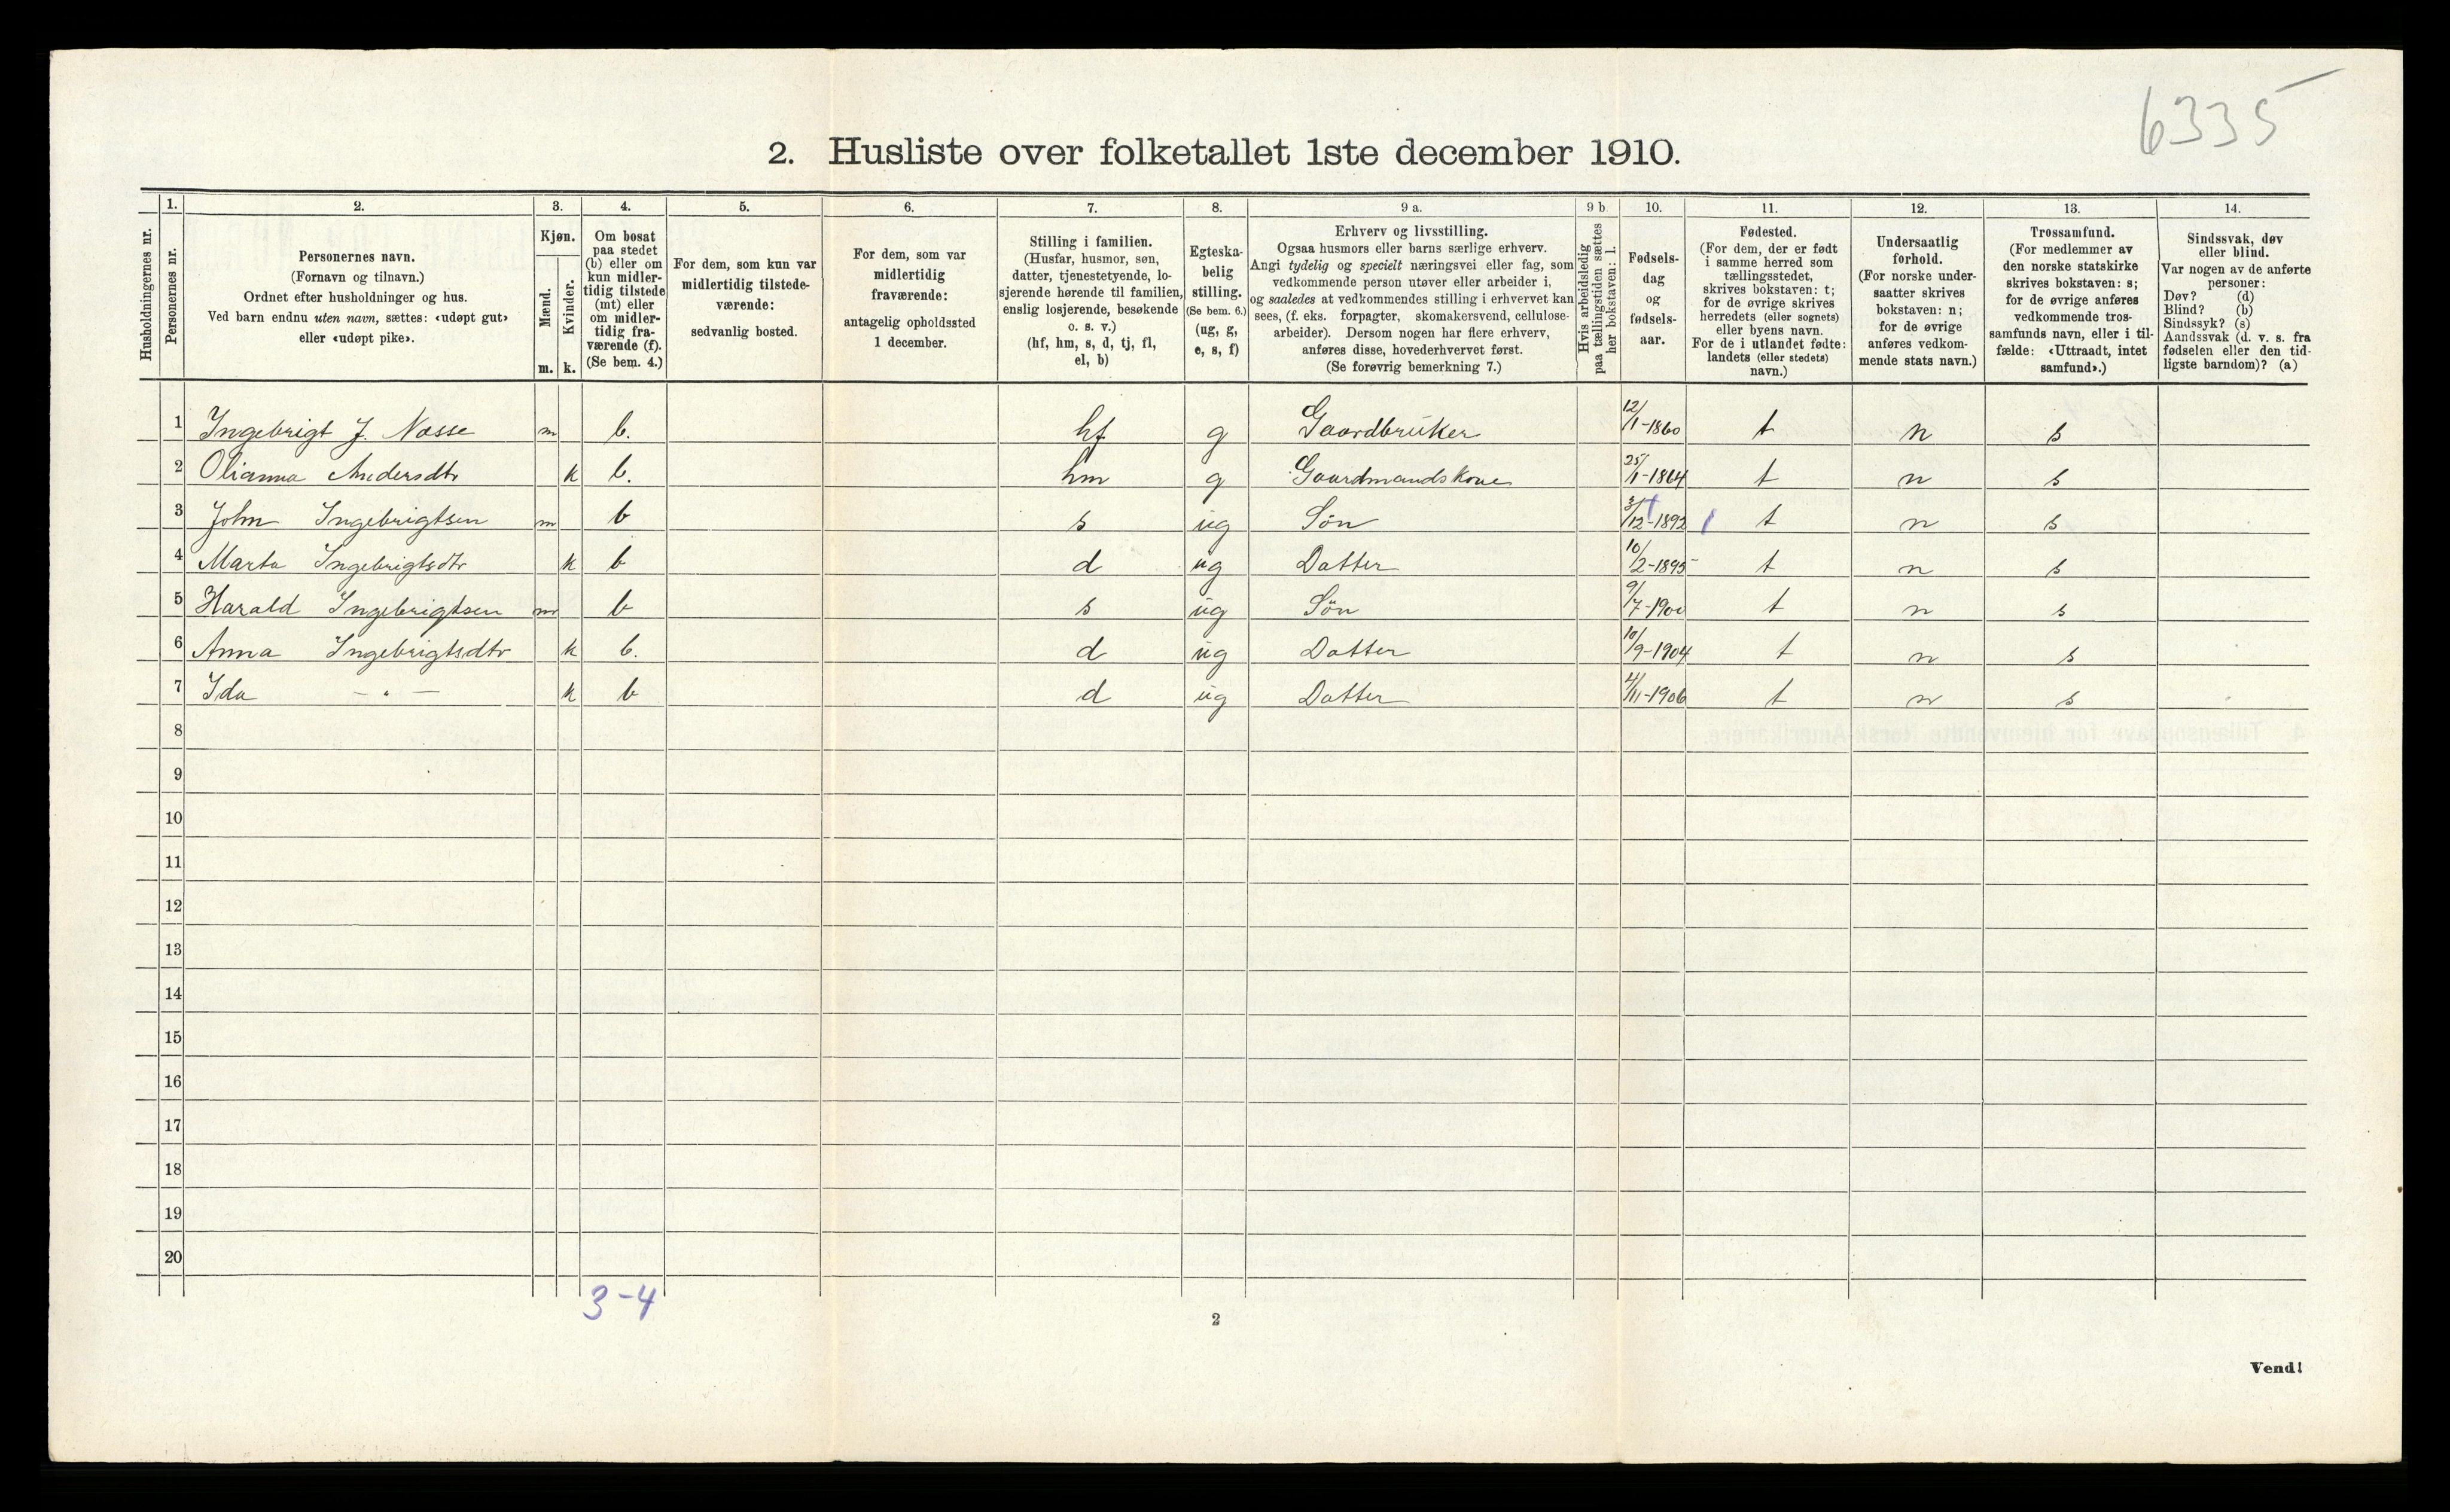 6335
2. Husliste over folketallet 1ste december 1910.
Husholdningernes nr.
1.
Personernes nr.
2.
Personernes navn.
(Fornavn og tilnavn.)
Ordnet efter husholdninger og hus.
Ved barn endnu uten navn, sættes: «udøpt gut»
eller «udøpt pike».
3.
Kjøn.
Mænd.
Kvinder.
m. k.
4.
Om bosat
paa stedet
(b) eller om
kun midler-
tidig tilstede
(mt) eller
om midler-
tidig fra-
værende (f).
(Se bem. 4.)
5.
For dem, som kun var
midlertidig tilstede-
værende:
sedvanlig bosted.
6.
For dem, som var
midlertidig
fraværende:
antagelig opholdssted
1 december.
7.
Stilling i familien.
(Husfar, husmor, søn,
datter, tjenestetyende, lo-
sjerende hørende til familien,
enslig losjerende, besøkende
o. s. v.)
(hf, hm, s, d, tj, fl,
el, b)
8.
Egteska-
belig
stilling.
(Se bem. 6.)
(ug, g,
e, s, f)
9 a.
Erhverv og livsstilling.
Ogsaa husmors eller barns særlige erhverv.
Angi tydelig og specielt næringsvei eller fag, som
vedkommende person utøver eller arbeider i,
og saaledes at vedkommendes stilling i erhvervet kan
sees, (f. eks. forpagter, skomakersvend, cellulose-
arbeider). Dersom nogen har flere erhverv,
anføres disse, hovederhvervet først.
(Se forøvrig bemerkning 7.)
9 b
Hvis arbeidsledig
paa tællingstiden sættes
her bokstaven: l.
10.
Fødsels-
dag
og
fødsels-
aar.
11.
Fødested.
(For dem, der er født
i samme herred som
tællingsstedet,
skrives bokstaven: t;
for de øvrige skrives
herredets (eller sognets)
eller byens navn.
For de i utlandet fødte:
landets (eller stedets)
navn.)
12.
Undersaatlig
forhold.
(For norske under-
saatter skrives
bokstaven: n;
for de øvrige
anføres vedkom-
mende stats navn.)
13.
Trossamfund.
(For medlemmer av
den norske statskirke
skrives bokstaven: s;
for de øvrige anføres
vedkommende tros-
samfunds navn, eller i til-
fælde: «Uttraadt, intet
samfund».)
14.
Sindssvak, døv
eller blind.
Var nogen av de anførte
personer:
Døv? (d)
Blind? (b)
Sindssyk? (s)
Aandssvak (d. v. s. fra
fødselen eller den tid-
ligste barndom)? (a)
1 Ingebrigt J. Næsse m b. hf g Gaardbruker 12/1-1860 t n s
2 Olianna Andersdtr k b. hm g Gaardmandskone 25/1-1864 t n s
3 John Ingebrigtsen m b s ug Søn 3/12-1892 t n s
4 Marta Ingebrigtsdtr k b d ug Datter 10/2-1895 t n s
5 Harald Ingebrigtsen m b s ug Søn 9/7-1900 t n s
6 Anna Ingebrigtsdtr k b. d ug Datter 10/9-1904 t n s
7 Ida – " – k b d ug Datter 4/11-1906 t n s
8
9
10
11
12
13
14
15
16
17
18
19
20
3-4
2
Vend!